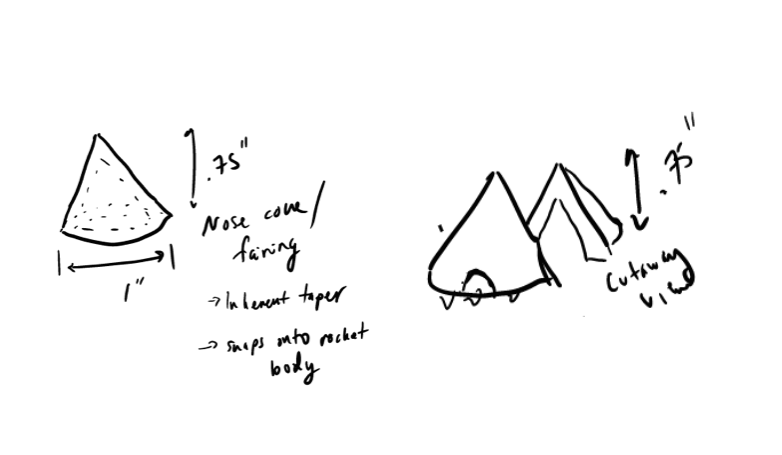 .75"
Nose cone/
fairing
1"
→ Inherent taper
→ snaps onto rocket
body
.75"
Cutaway
view